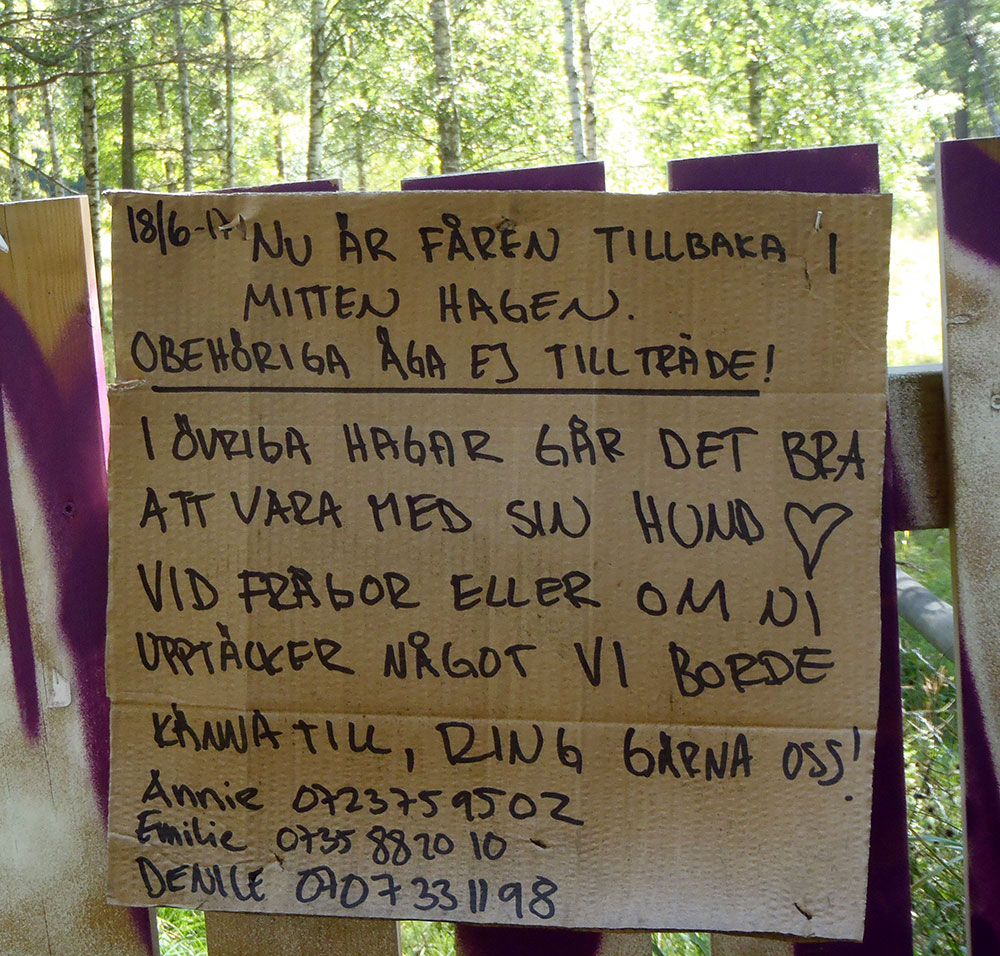 18/6-17 NU ÄR FÅREN TILLBAKA I
MITTEN HAGEN.
OBEHÖRIGA ÄGA EJ TILLTRÄDE!
I ÖVRIGA HAGAR GÅR DET BRA
ATT VARA MED SIN HUND ♡
VID FRÅGOR ELLER OM NI
UPPTÄCKER NÅGOT VI BORDE
KÄNNA TILL, RING GÄRNA OSS!
Annie 0723759502
Emilie 0735 88 20 10
DENICE 0707331198